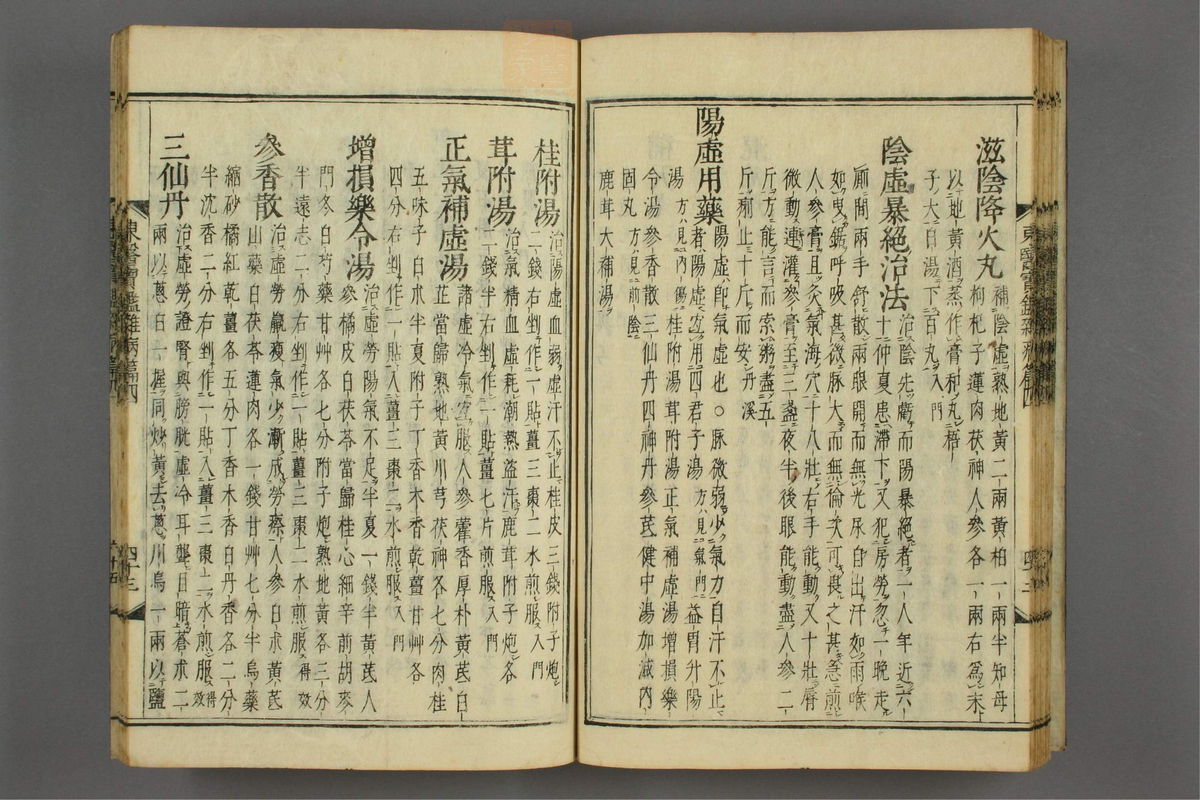 滋陰降火丸 補陰虛熟地黃二兩黃柏一兩半知母
枸杞子蓮肉茯神人參各一兩右爲末
以地黃酒蒸作膏和丸梧
子大白湯下百丸入門
陰虛暴絕治法 治陰先虧而陽暴絕者一人年近六
十仲夏患滯下又犯房勞忽一晚走
廁間兩手舒散兩眼開而無光尿自出汗如雨喉
如曳鋸呼吸甚微脉大而無倫次可畏之甚急煎
人參膏且灸氣海穴十八壯右手能動又十壯脣
微動連灌參膏至三盞夜半後眼能動盡人參二
斤方能言而索粥盡五
斤痢止十斤而安丹溪
陽虛用藥 陽虛卽氣虛也○脉微弱少氣力自汗不止
者陽虛宜用四君子湯方見氣門益胃升陽
湯方見內傷桂附湯茸附湯正氣補虛湯增損樂
令湯參香散三仙丹四神丹參芪健中湯加減內
固丸方見前陰
鹿茸大補湯
桂附湯 治陽虛血弱虛汗不止桂皮三錢附子炮
二錢右剉作一貼薑三棗二水煎服入門
茸附湯 治氣精血虛耗潮熱盜汗鹿茸附子炮各
二錢半右剉作一貼薑七片煎服入門
正氣補虛湯 諸虛冷氣宜服人參藿香厚朴黃芪白
芷當歸熟地黃川芎茯神各七分肉桂
五味子白朮半夏附子丁香木香乾薑甘艸各
四分右剉作一貼入薑三棗二水煎服入門
增損樂令湯 治虛勞陽氣不足半夏一錢半黃芪人
參橘皮白茯苓當歸桂心細辛前胡麥
門冬白芍藥甘艸各七分附子炮熟地黃各三分
半遠志二分右剉作一貼薑三棗二水煎服得效
參香散 治虛勞羸瘦氣少漸成勞瘵人參白朮黃芪
山藥白茯苓蓮肉各一錢甘艸七分半烏藥
縮砂橘紅乾薑各五分丁香木香白丹香各二分
半沈香二分右剉作一貼入薑三棗二水煎服得效
三仙丹 治虛勞證腎與膀胱虛冷耳聾目暗蒼朮二
兩以葱白一握同炒黃去葱川烏一兩以鹽